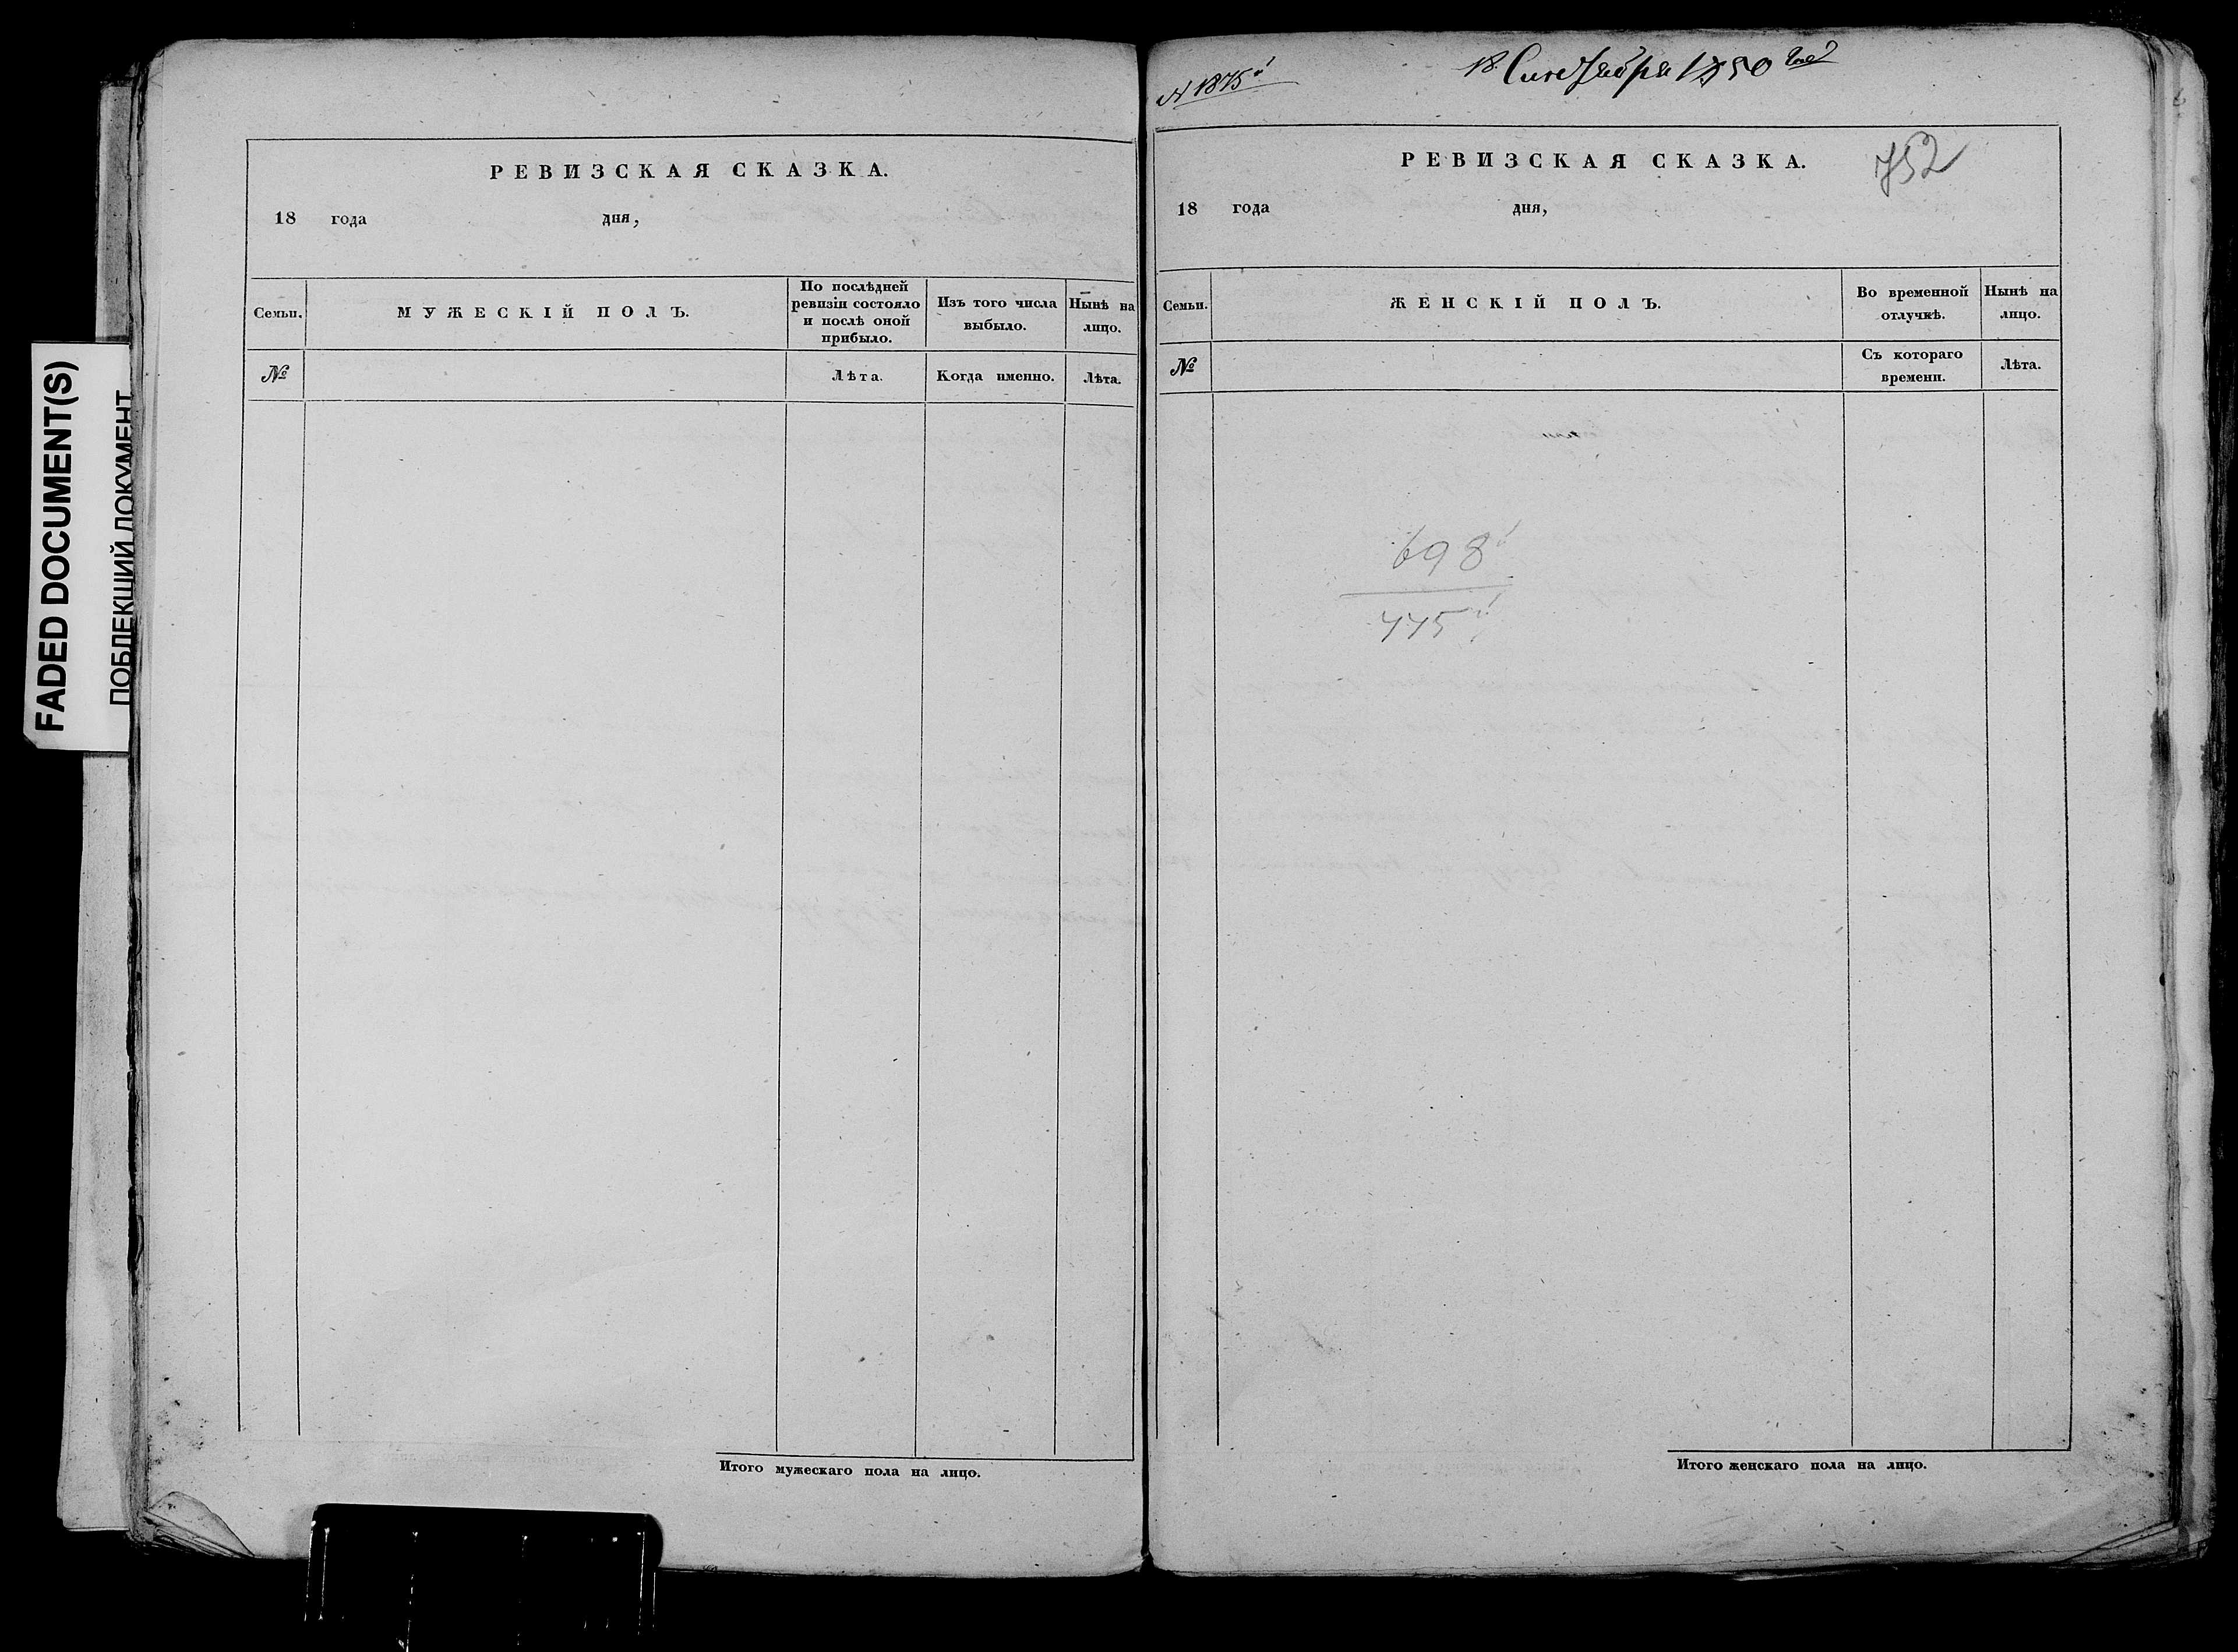 FADED DOCUMENT(S)
ПОБЛЕКШИЙ ДОКУМЕНТ
РЕВИЗСКАЯ СКАЗКА.
18 года дня,
Семьи.
МУЖЕСКІЙ ПОЛЪ.
По послѣдней
ревизіи состояло
и послѣ оной
прибыло.
Изъ того числа
выбыло.
Нынѣ на
лицо.
№
Лѣта.
Когда именно.
Лѣта.
Итого мужескаго пола на лицо.
№ 1875й
18. Сентября 1850 год
752
РЕВИЗСКАЯ СКАЗКА.
18 года дня,
Семьи.
ЖЕНСКІЙ ПОЛЪ.
Во временной
отлучкѣ.
Нынѣ на
лицо.
№
Съ котораго
времени.
Лѣта.
698й
445й
Итого женскаго пола на лицо.